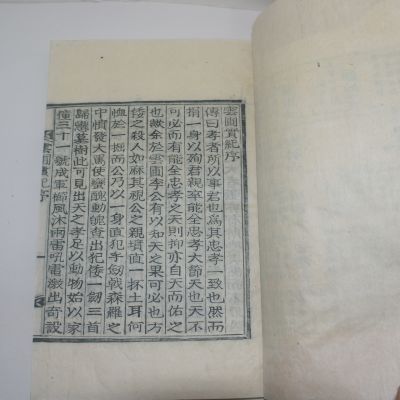 雲圃實紀序
傳曰孝者所以事君也爲其忠孝一致也然而
捐一身以殉君親卒能全忠孝大節天也天不
可必而有能全忠孝之天則抑亦自天而佑之
也歟余於雲圃李公有以知天之果可必也方
倭之殺人如麻其視公之親墳直一抔土耳何
恤於一掘而公乃以一身直犯手劒戟森羅之
中憤發大罵使蠻醜動魄查出犯倭一劒三首
歸懸墓樹此可見出天之孝足以動物始以家
僮三十一號成軍櫛風沐雨雷吼電激出奇設
雲圃實紀序